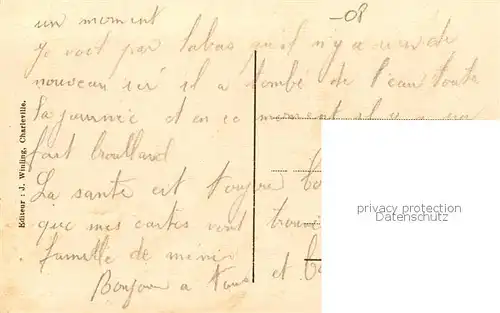 -08
un moment
Je voit par labas qu'il n'y a rien de
nouveau ici il a tombé de l'eau toute
la journée et en ce moment il y a un
fort brouillard
La santé est toujour bo
que mes cartes vont trouvé
famille de même
Bonjour a tous et bo
Editeur : J. Winling, Charleville.
privacy protection
Datenschutz